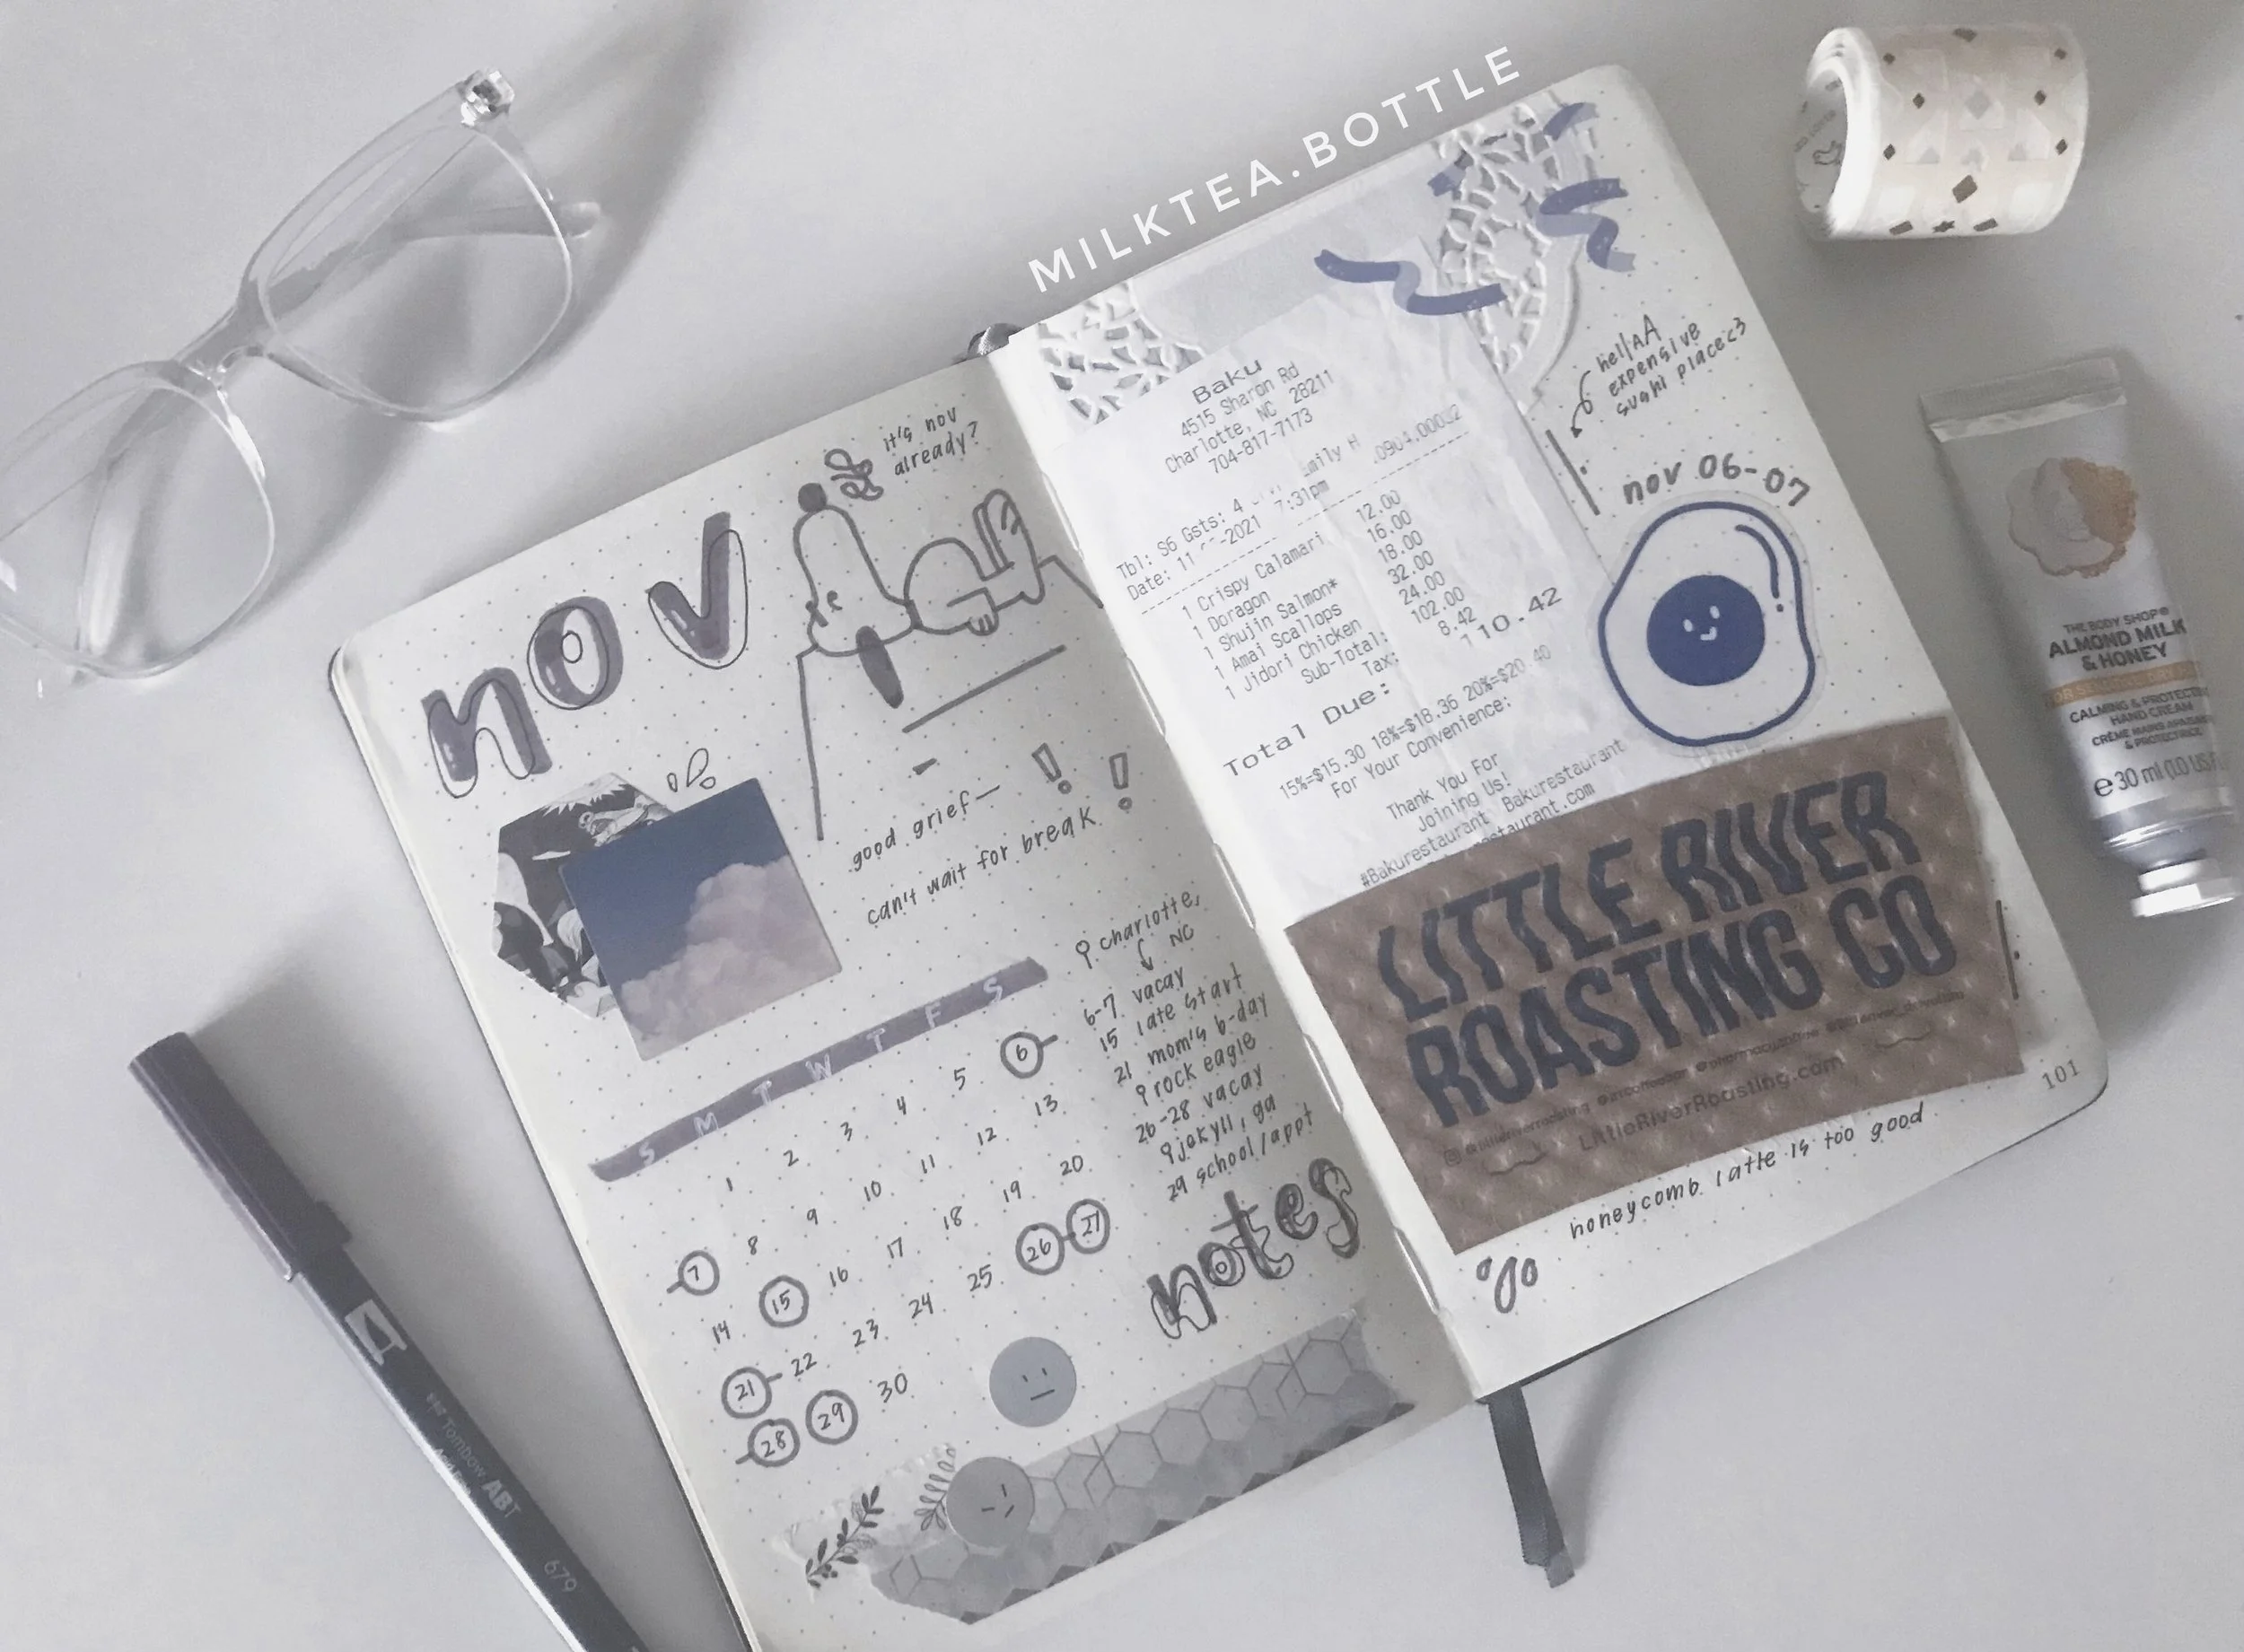 MILKTEA.BOTTLE
it's nov
already?
nov
good grief—
can't wait for break!!
charlotte,
NC
6-7 vacay
15 late start
21 mom's b-day
rock eagle
26-28 vacay
jekyll, ga
29 school/appt
S M T W T F S
1 2 3 4 5 6
7 8 9 10 11 12 13
14 15 16 17 18 19 20
21 22 23 24 25 26 27
28 29 30
notes
Baku
4515 Sharon Rd
Charlotte, NC 28211
704-817-7173
Tbl: S6 Gsts: 4
Date: 11 -2021 7:31pm
1 Crispy Calamari 12.00
1 Doragon 16.00
1 Shujin Salmon* 18.00
1 Amai Scallops 32.00
1 Jidori Chicken 24.00
Sub-Total: 102.00
Tax: 8.42
Total Due: 110.42
15%=$15.30 18%=$18.36 20%=$20.40
For Your Convenience:
Thank You For
Joining Us!
#Bakurestaurant Bakurestaurant
staurant.com
hellAA
expensive
sushi place<3
nov 06-07
LITTLE RIVER
ROASTING CO
@littleriverroasting
LittleRiverRoasting.com
honeycomb latte is too good
101
THE BODY SHOP®
ALMOND MILK
& HONEY
CALMING & PROTECTING
HAND CREAM
CRÈME MAINS APAISANTE
& PROTECTRICE
e 30 ml (1.0 US
Tombow ABT
679